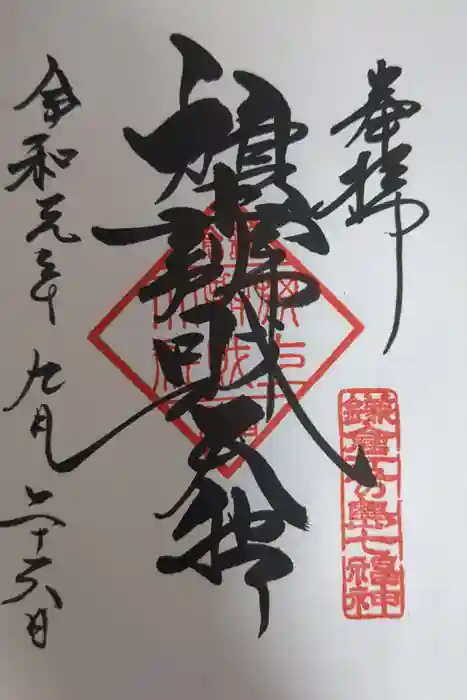 奉拝
旗上辨財天社
鎌倉江乃島七福神
令和元年九月二十六日